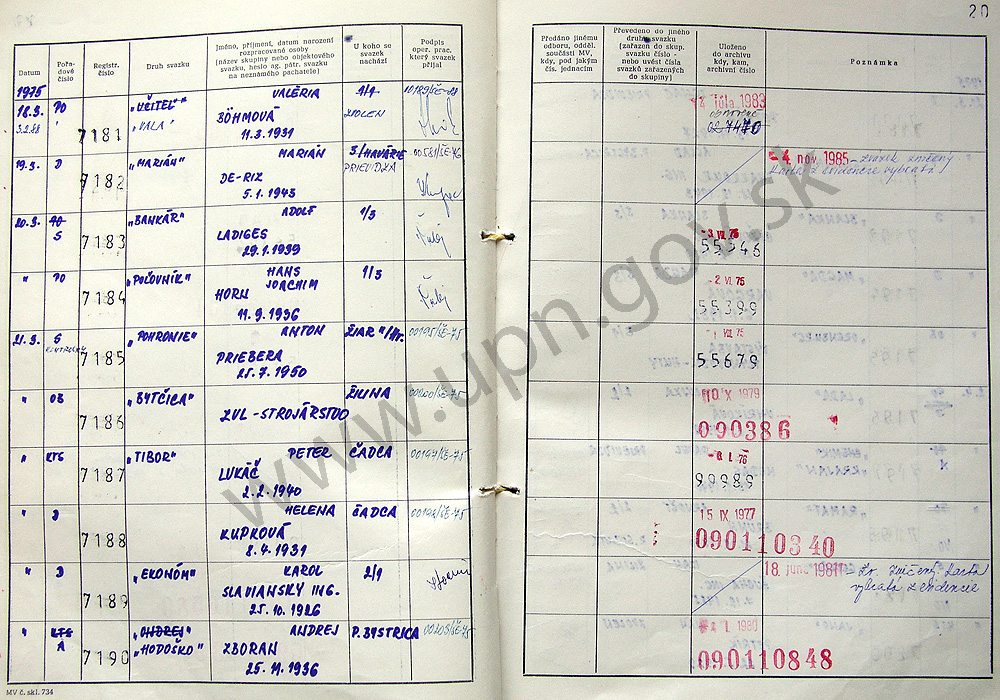 20
Datum
Pořadové číslo
Registr. číslo
Druh svazku
Jméno, příjmení, datum narození
rozpracované osoby
(název skupiny nebo objektového
svazku, heslo ag. pátr. svazku
na neznámého pachatele)
U koho se svazek nachází
Podpis oper. prac. který svazek přijal
Předáno jinému odboru, odděl. součásti MV, kdy, pod jakým čís. jednacím
Převedeno do jiného druhu svazku (zařazen do skup. svazku číslo - nebo uvést čísla svazků zařazených do skupiny)
Uloženo do archivu kdy, kam, archivní číslo
Poznámka
1975
18.3. PO 7181 „UČITEĽ" VALÉRIA
3.2.88 „VALA" BÖHMOVÁ ZVOLEN
11.3.1931
1983
19.3. D 7182 „MARIÁN" MARIÁN 3/HAVÁRIE
PRIEVIDZA
DE-RIZ
5.1.1943
-4. nov. 1985 - zväzok zničený
karta z evidencie vybratá
20.3. S 7183 „BANKÁR" ADOLF 1/3
LADIGES
29.1.1939
-3. VII. 75
55346
" PO 7184 „POĽOVNÍK" HANS 1/3
JOACHIM
HORN
11.9.1936
-2. VII. 75
55399
21.3. S 7185 „POHRONIE" ANTON
PRIEBERA
25.7.1950
VII. 75
55679
" OB 7186 „BYTČICA" ŽILINA
ZVL - STROJÁRSTVO
10. IX. 1979
090386
" KTS 7187 „TIBOR" PETER ČADCA 00197/ŠE-75
LUKÁČ
2.2.1940
-6. I. 76
99989
" D 7188 HELENA ČADCA
KUPKOVÁ
8.4.1931
15. IX. 1977
090110340
" D 7189 „EKONÓM" KAROL 2/1
SLAVIANSKY ING.
25.10.1926
18. june 1981 - zv. zničený. karta
vybratá z evidencie
" KTS 7190 „ONDREJ" ANDREJ P. BYSTRICA
A „HODOŠKO" ZBORAN
25.11.1936
1980
090110848
MV č. skl. 734
www.upn.gov.sk